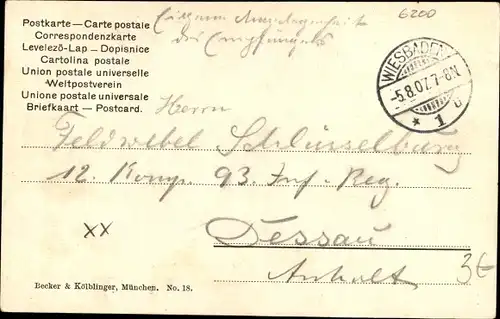 Postkarte — Carte postale
Correspondenzkarte
Levelező-Lap — Dopisnice
Cartolina postale
Union postale universelle
Weltpostverein
Unione postale universale
Briefkaart — Postcard.
Eigene Angelegenheit
des Empfängers
6200
WIESBADEN
-5.8.07.7-8N.
* 1
Herrn
Feldwebel Schlüsselburg
12. Komp. 93. Inf. Reg.
XX
Dessau
Anhalt
3€
Becker & Kölblinger, München. No. 18.